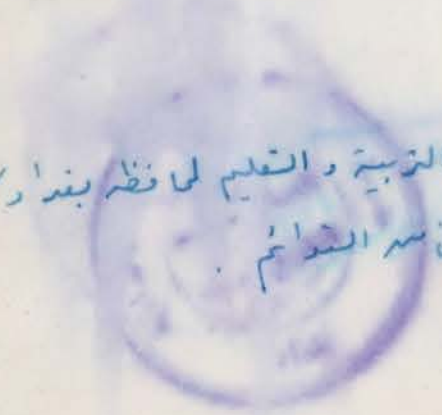 لتربية و التعليم لمحافظة بغداد
من القوائم .